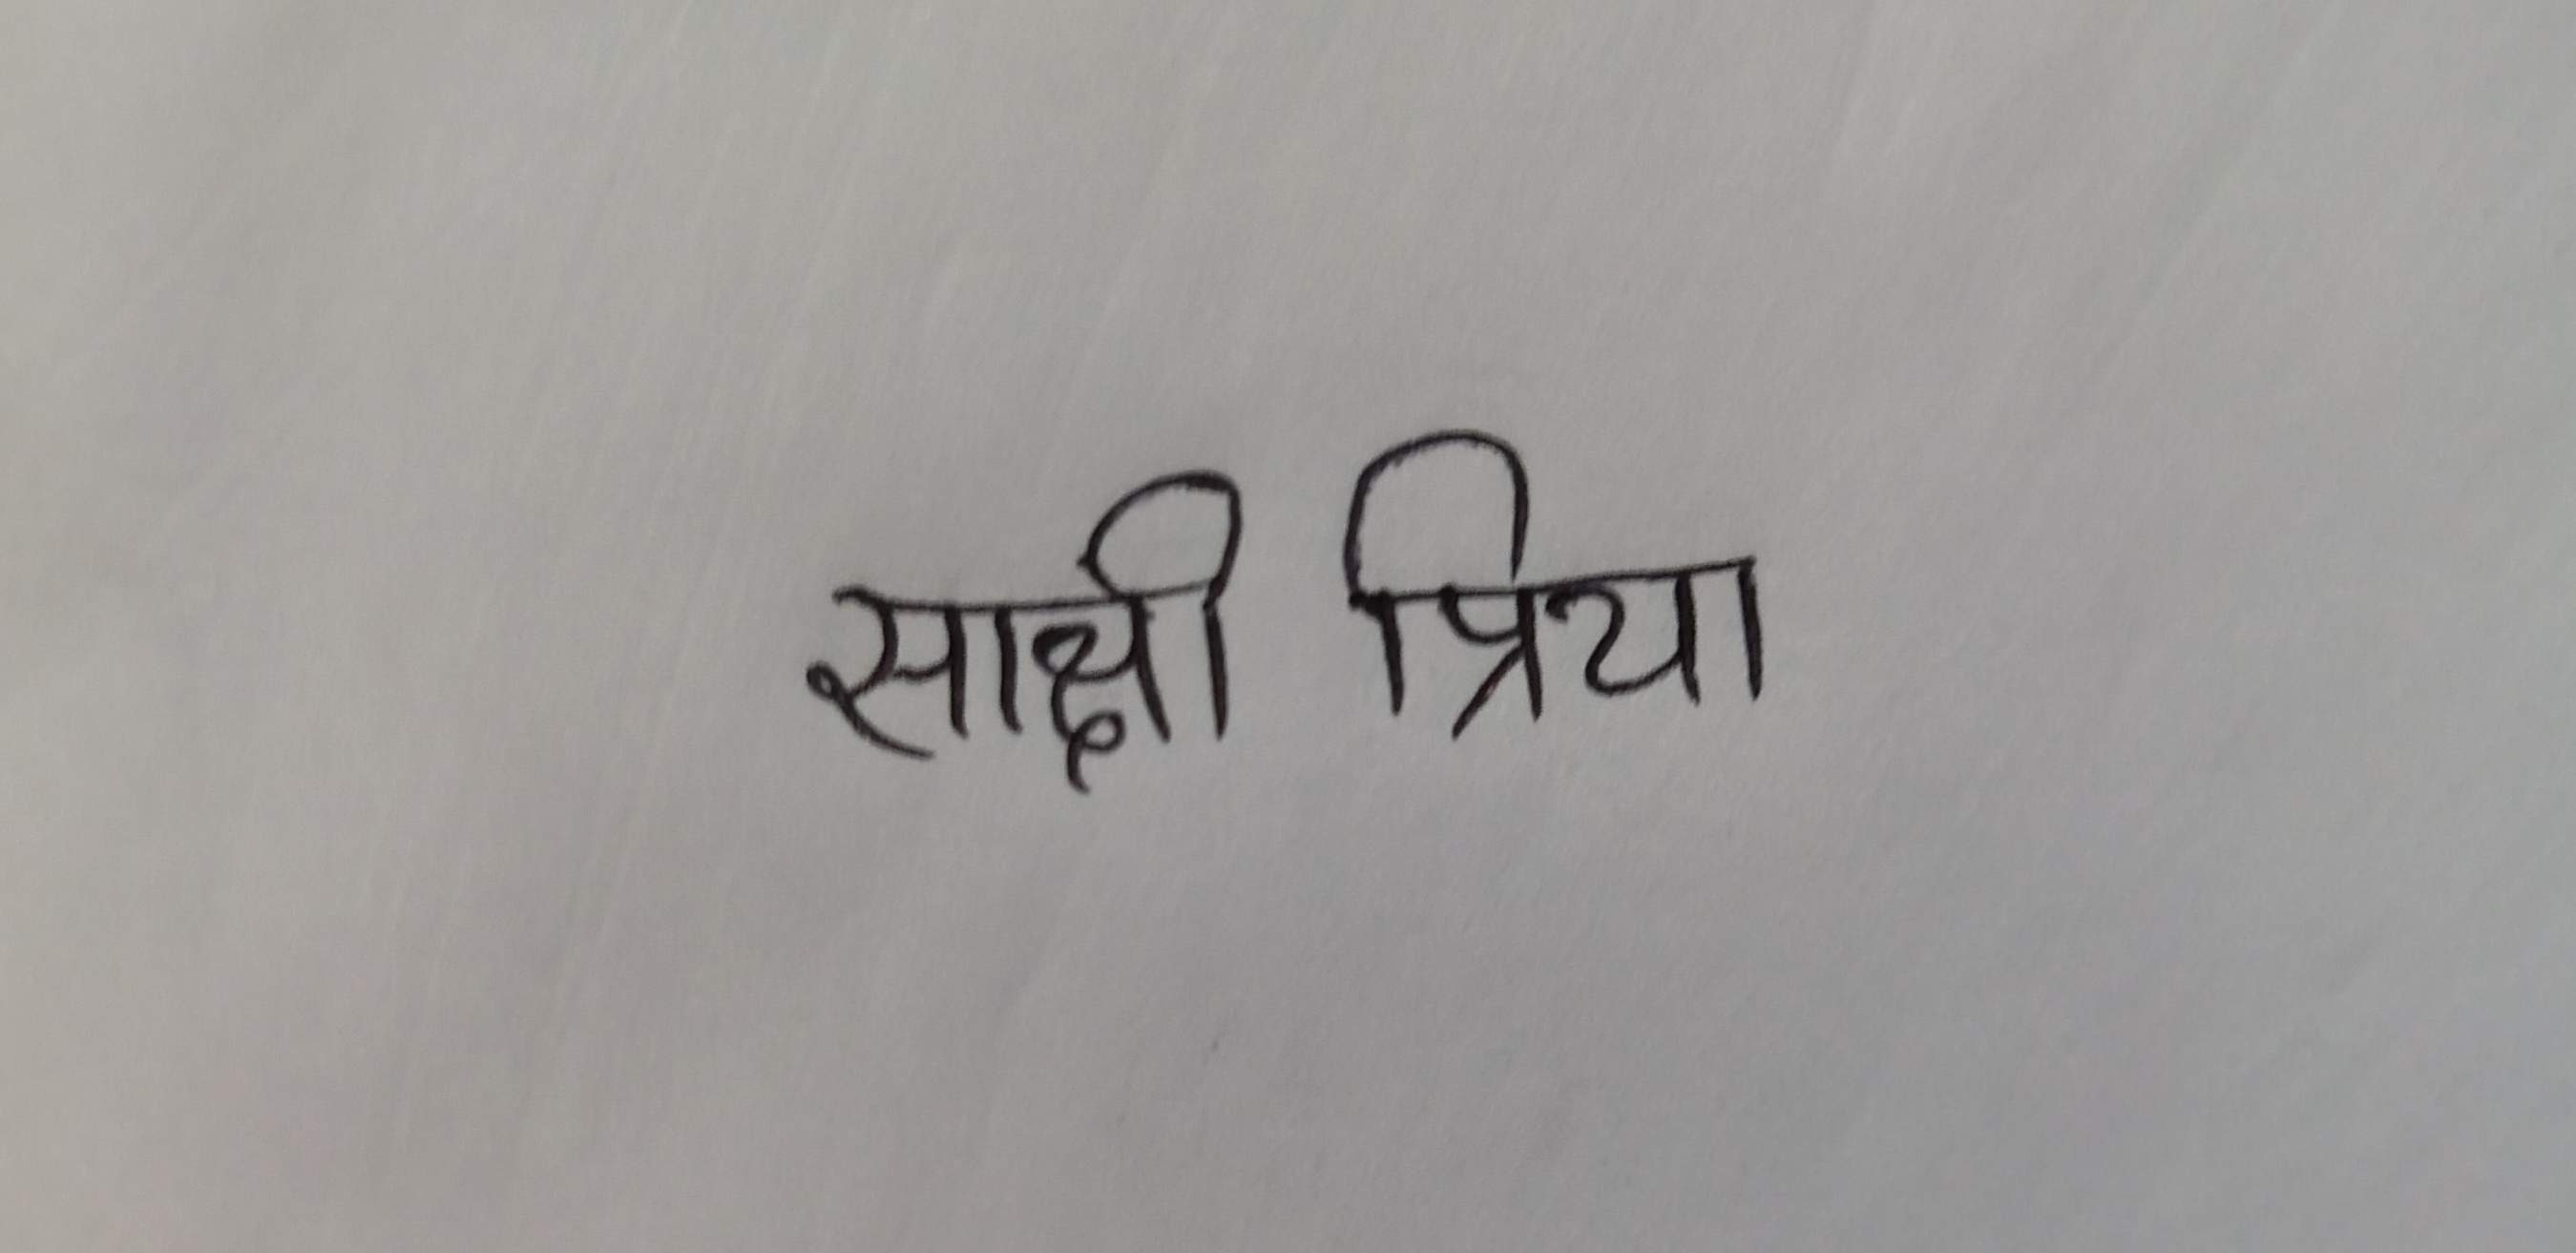 साक्षी प्रिया